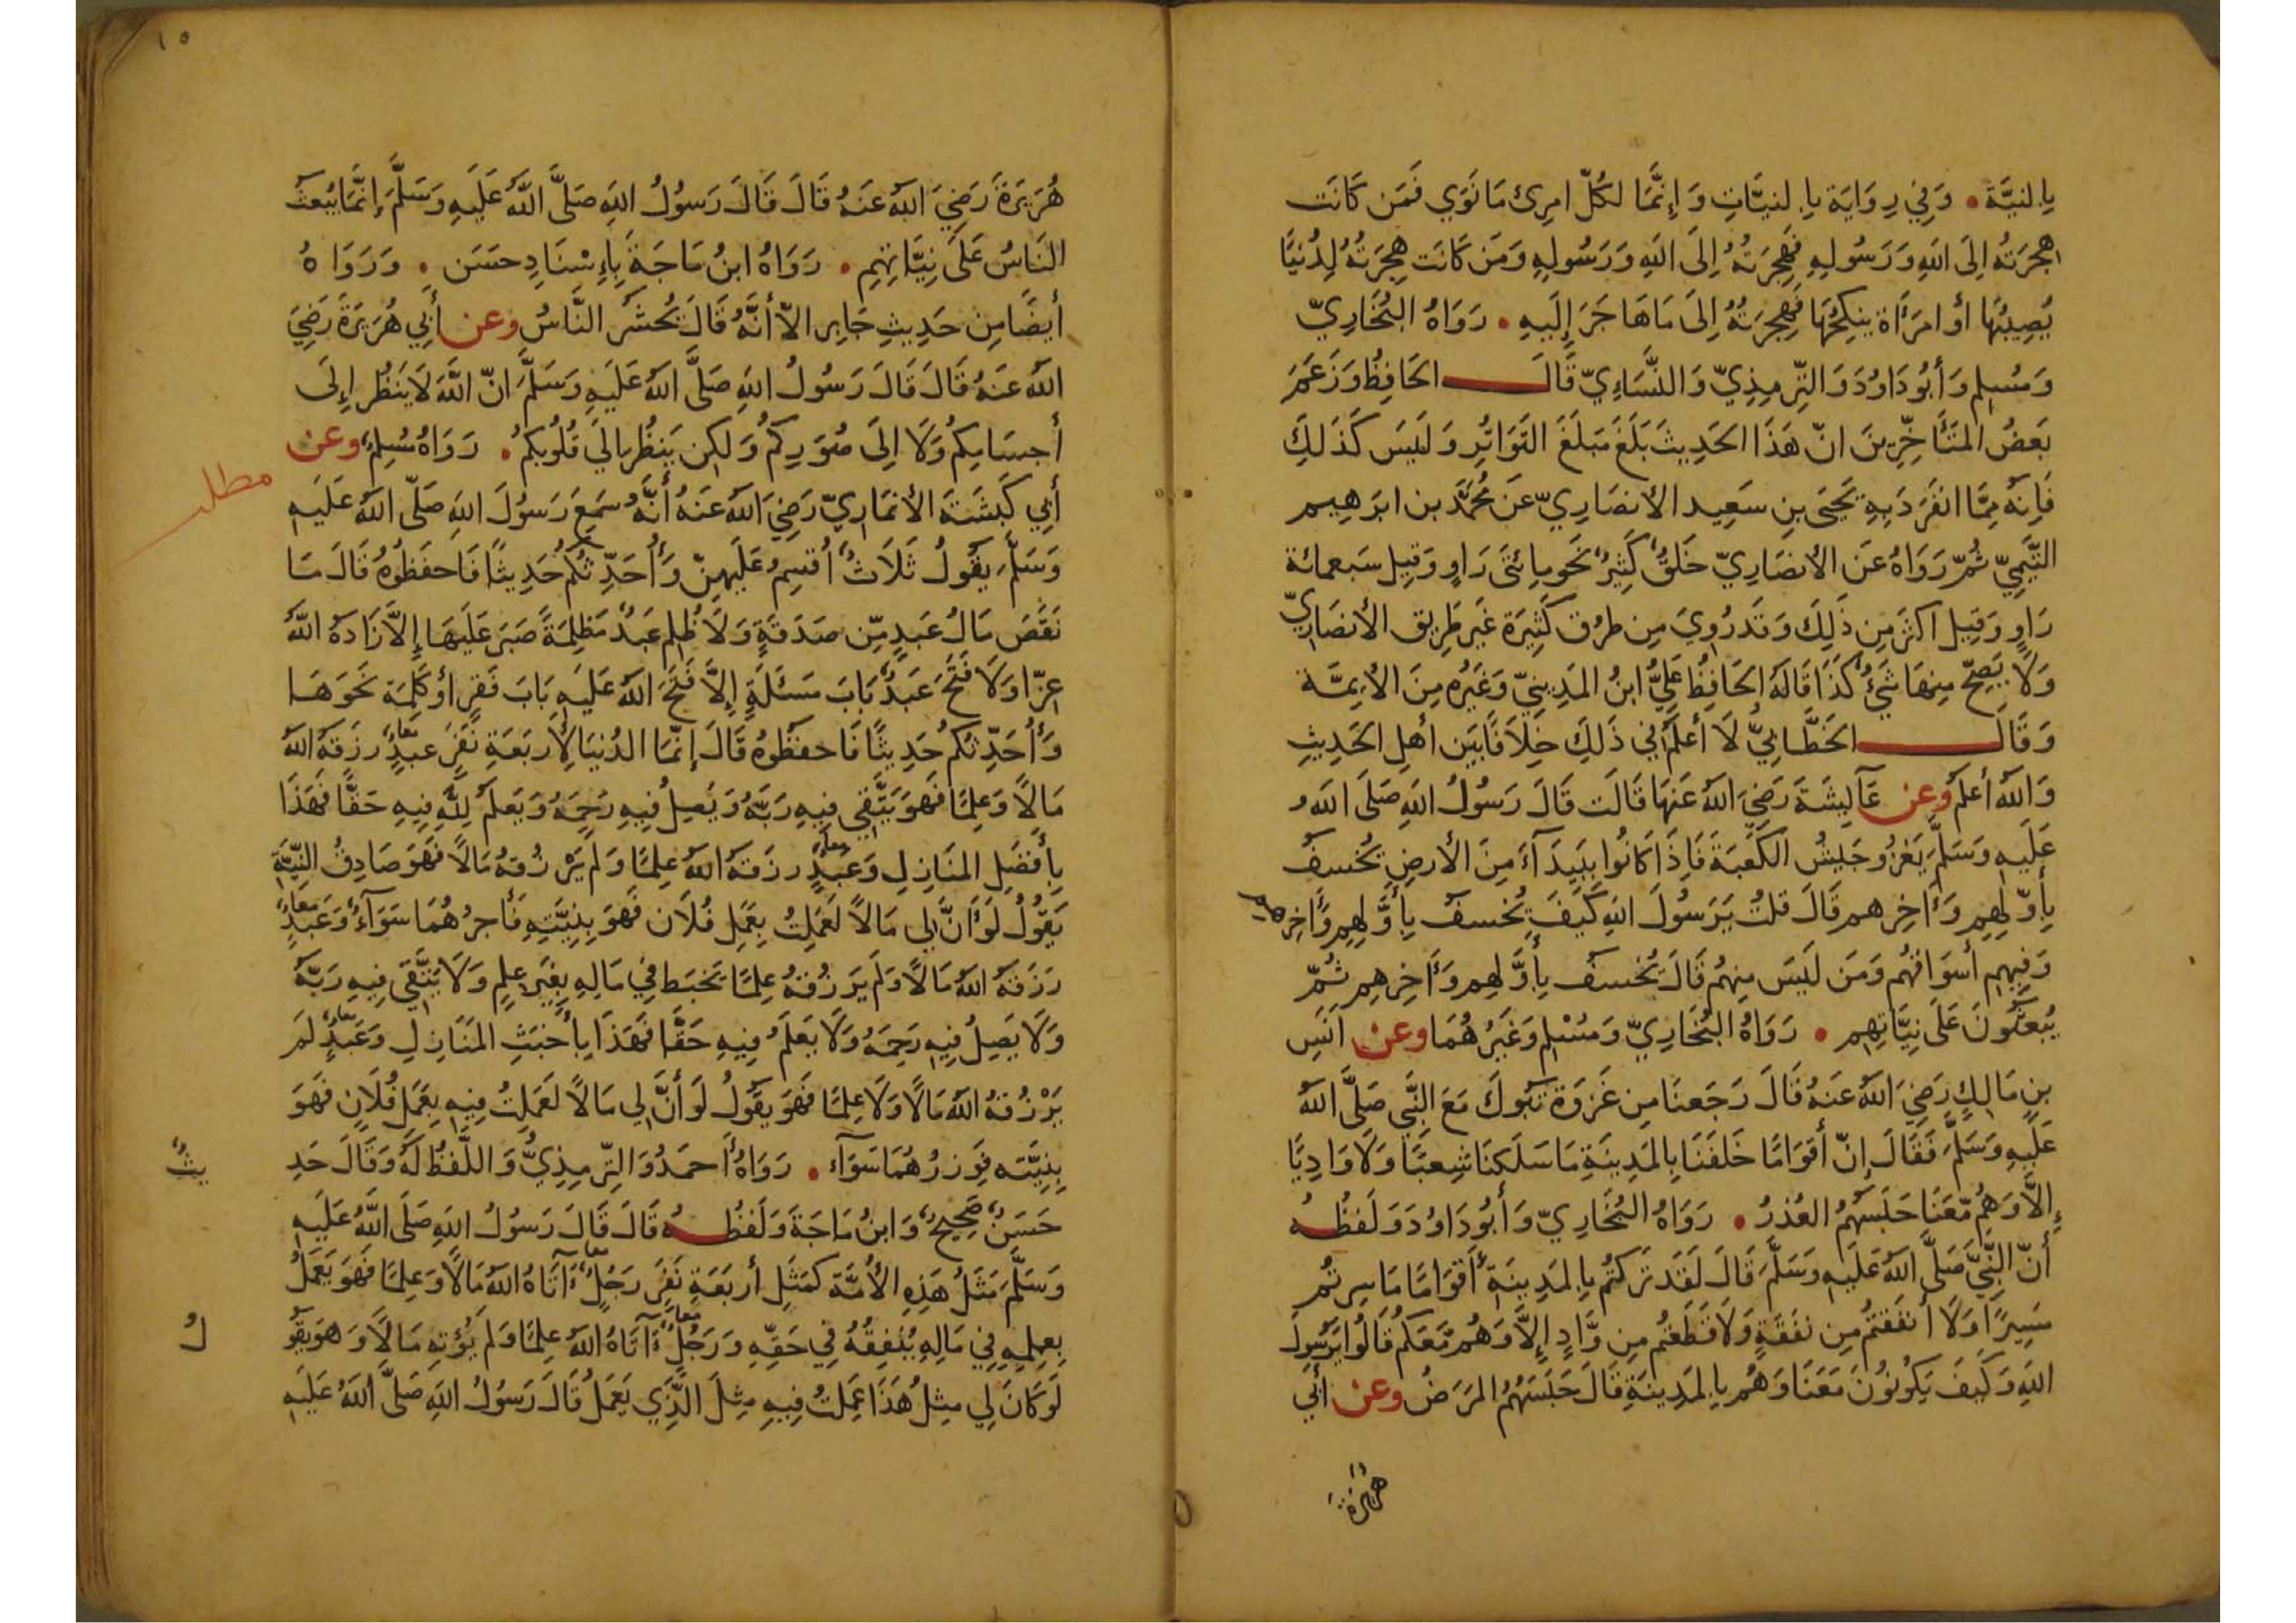 بِالنيَّة • وَفِي رِوَايَة بِالنيَّاتِ وَإِنَّمَا لكُلّ امرِئ مَا نَوَي فَمَن كَانَت
هِجرَتُه اِلَى اللهِ وَرَسُولِهِ فَهِجرَتُهُ اِلَى اللهِ وَرَسُولِهِ وَمَن كَانَت هِجرَتُهُ لِدُنيَا
يُصِيبُهَا أو امرَأَة ينكِحُهَا فَهِجرَتُهُ اِلَى مَاهَاجَرَ إِلَيهِ • رَوَاهُ البُخَارِيّ
وَمُسلِم وَأبُودَاوُدَ وَالتِّرمِذِيّ وَالنَّسَاءِيّ قَالَ الحَافِظُ وَزَعَمَ
بَعَضُ المتَأَخِّرِينَ انّ هَذَا الحَدِيثَ بَلَغَ مَبلَغَ التَوَاتُرِ وَلَيسَ كَذَلِكَ
فَاِنَّهُ مِمَّا انفَرَدَ بِهِ يَحيَى بنِ سَعِيد الأنصَارِيّ عَن مُحَمَّد بن ابرَهِيم
التَّيمِيّ ثُمّ رَوَاهُ عَن الأنصَارِيّ خَلقٌ كَثِيرٌ نَحو مِائتَى رَاوٍ وَقِيل سَبعمائة
رَاوٍ وَقِيل اكثَر مِن ذَلِكَ وَقَد رُوِيَ مِن طرُق كَثِيرَة غَير طَرِيق الأنصَارِيّ
وَلَا يَصِحّ مِنهَا شَيءٌ كَذَا قَالَهُ الحَافِظُ عَلِيُّ ابنُ المَدِينِيّ وَغَيرُه مِنَ الأيِمَّة
وَقَالَ الخَطَّابِيُّ لَا أعلَمُ فِي ذَلِكَ خِلَافًا بَين أهلِ الحَدِيثِ
وَاللهُ أعلَم وعن عَآيِشَةَ رَضِيَ اللهُ عَنهَا قَالَت قَالَ رَسُولُ اللهِ صَلَى اللهُ
عَلَيهِ وَسَلَّمَ يَغزُو جَيشُ الكَعبَةَ فَاِذَا كَانُوا بِبَيدَآءَ مِنَ الأرضِ يُخسفُ
بِأَوَّلِهِم وَءَاخِرِهم قَالَ قلتُ يَرَسُولَ اللهِ كَيفَ يُخسفُ بِأَوَّلِهِم وَءَاخِرهم
وَفِيهِم أسوَاقهُم وَمَن لَيسَ مِنهُم قَالَ يُخسفُ بِأَوَّلِهِم وَءَاخِرِهِم ثُمّ
يُبعَثُونَ عَلَى نِيَّاتِهِم • رَوَاهُ البُخَارِيّ وَمُسلِم وَغَيرُهُمَا وعن انَسِ
بنِ مَالِكٍ رَضِيَ اللهُ عَنهُ قَالَ رَجَعنَا مِن غَزوَة تَبُوكَ مَعَ النَّبِي صَلَّى اللهُ
عَلَيهِ وَسَلَّمَ فَقَالَ إِنّ أقوَامًا خَلفَنَا بِالمَدِينَةِ مَا سَلَكنَا شِعبًا وَلَا وَادِيًا
إِلَّا وَهُم مَعَنَا حَبَسَهُمُ العُذرُ • رَوَاهُ البُخَارِيّ وَأَبُودَاوُدَ وَلَفظُه
أنّ النَّبِيَّ صَلَّى اللهُ عَلَيهِ وَسَلَّمَ قَالَ لَقَد تَرَكتُم بِالمَدِينَةِ أَقوَامًا مَا سِرتُم
مَسِيرًا وَلَا أنفَقتُم مِن نَفَقَةٍ وَلَا قَطَعتُم مِن وَّادٍ إِلَّا وَهُم مَّعَكُم قَالُوا يَرَسُولَ
اللهِ وَكَيفَ يَكُونُونَ مَعَنَا وَهُم بِالمَدِينَةِ قَالَ حَبَسَهُمُ المَرَضُ وعن أبي
هريرة
١٥
هُرَيرَةَ رَضِيَ اللهُ عَنهُ قَالَ قَالَ رَسُولُ اللهِ صَلَّى اللهُ عَلَيهِ وَسَلَّمَ إِنَّمَا يُبعَثُ
النَاسُ عَلَى نِيَّاتِهِم • رَوَاهُ ابنُ مَاجَة بِإِسنَادِ حسَن • وَرَوَاهُ
أيضًا مِن حَدِيثِ جَابِر الاّ أنَّهُ قَالَ يُحشَرُ النَّاسُ وعن أبي هُرَيرَةَ رَضِيَ
اللهُ عَنهُ قَالَ قَالَ رَسُولُ اللهِ صَلَّى اللهُ عَلَيهِ وَسَلَّمَ انّ اللَّهَ لَا يَنظُر إِلَى
أجسَامِكُم وَلَا اِلَى صُوَرِكُم وَلَكِن يَنظُر اِلَى قُلُوبِكُم • رَوَاهُ مُسلِمٌ وعن
مطلب
أبِي كَبشَةَ الأنمَارِيّ رَضِيَ اللهُ عَنهُ أَنَّهُ سَمِعَ رَسُولَ اللهِ صَلّى اللهُ عَلَيهِ
وَسَلَّمَ يَقُولُ ثَلَاثٌ أُقسِمُ عَلَيهِنّ وَأُحَدِّثُكُم حَدِيثًا فَاحفَظُوهُ قَالَ مَا
نَقَصَ مَالُ عَبدٍ مِّن صَدَقَةٍ وَلَا ظُلِم عَبدٌ مَظلِمَةً صَبَرَ عَلَيهَا إِلَّا زَادَهُ اللهُ
عِزّا وَلَا فَتَحَ عَبدٌ بَابَ مَسئَلَةٍ إِلَّا فَتَحَ اللهُ عَلَيهِ بَابَ فَقرٍ أو كَلِمَة نَحوَهَا
وَأُحَدِّثُكُم حَدِيثًا فَاحفَظُوهُ قَالَ إِنَّمَا الدُنيَا لِأَربَعَةِ نَفَرٍ عَبدٌ رزَقهُ اللهُ
مَالًا وَعِلمًا فَهوَ يَتَّقِي فِيهِ رَبَّهُ وَيَصِلُ فِيهِ رَحِمَهُ وَيَعلَمُ لِلَّهِ فِيهِ حَقًّا فَهَذَا
بِأَفضَلِ المَنَازِلِ وَعَبدٌ رزَقهُ اللهُ عِلمًا وَلَم يَرزُقهُ مَالًا فَهوَ صَادِقُ النِيَّة
يَقُولُ لَوأَنَّ لِي مَالًا لَعَمِلتُ بِعَمَلِ فُلَان فَهوَ بِنِيَّتِهِ فَأَجرُهُمَا سَوَآءٌ وَعَبدٌ
رَزَقهُ اللهُ مَالًا وَلَم يَرزُقهُ عِلمًا يَخبَط فِي مَالِهِ بِغَيرِ عِلمٍ وَلَا يَتَّقِي فِيهِ رَبَّهُ
وَلَا يَصِلُ فِيهِ رَحِمَهُ وَلَا يَعلَمُ فِيهِ حَقًّا فَهَذَا بِأَخبَثِ المَنَازِلِ وَعَبدٌ لَم
يَرزُقهُ اللهُ مَالًا وَلَا عِلمًا فَهوَ يَقُولُ لَو أَنَّ لِي مَالًا لَعَمِلتُ فِيهِ بِعَمَلِ فُلَانٍ فَهوَ
بِنِيَّتِه فَوِزرُهُمَا سَوَآء • رَوَاهُ أَحمَدُ وَالتِّرمِذِيُّ وَاللَّفظُ لَهُ وَقَالَ حَدِ
يثٌ
حَسَنٌ صَحِيحٌ وَابنُ مَاجَة وَلَفظُه قَالَ قَالَ رَسُولُ اللهِ صَلَى اللهُ عَلَيهِ
وَسَلَّمَ مَثَلُ هَذِهِ الأُمَّة كَمَثَلِ أربَعَةِ نَفَرٍ رَجُلٌ ءَآتَاهُ اللهُ مَالًا وَعِلمًا فَهوَ يَعمَلُ
بِعِلمِهِ فِي مَالِهِ يُنفِقُهُ فِي حَقِّهِ وَرَجُلٌ ءَآتَاهُ اللهُ عِلمًا وَلَم يُؤتِهِ مَالًا وَهوَ يَقُو
لُ
لَو كَانَ لِي مِثلُ هَذَا عَمِلتُ فِيهِ مِثلَ الَّذِي يَعمَلُ قَالَ رَسُولُ اللهِ صَلَّى اللهُ عَلَيهِ